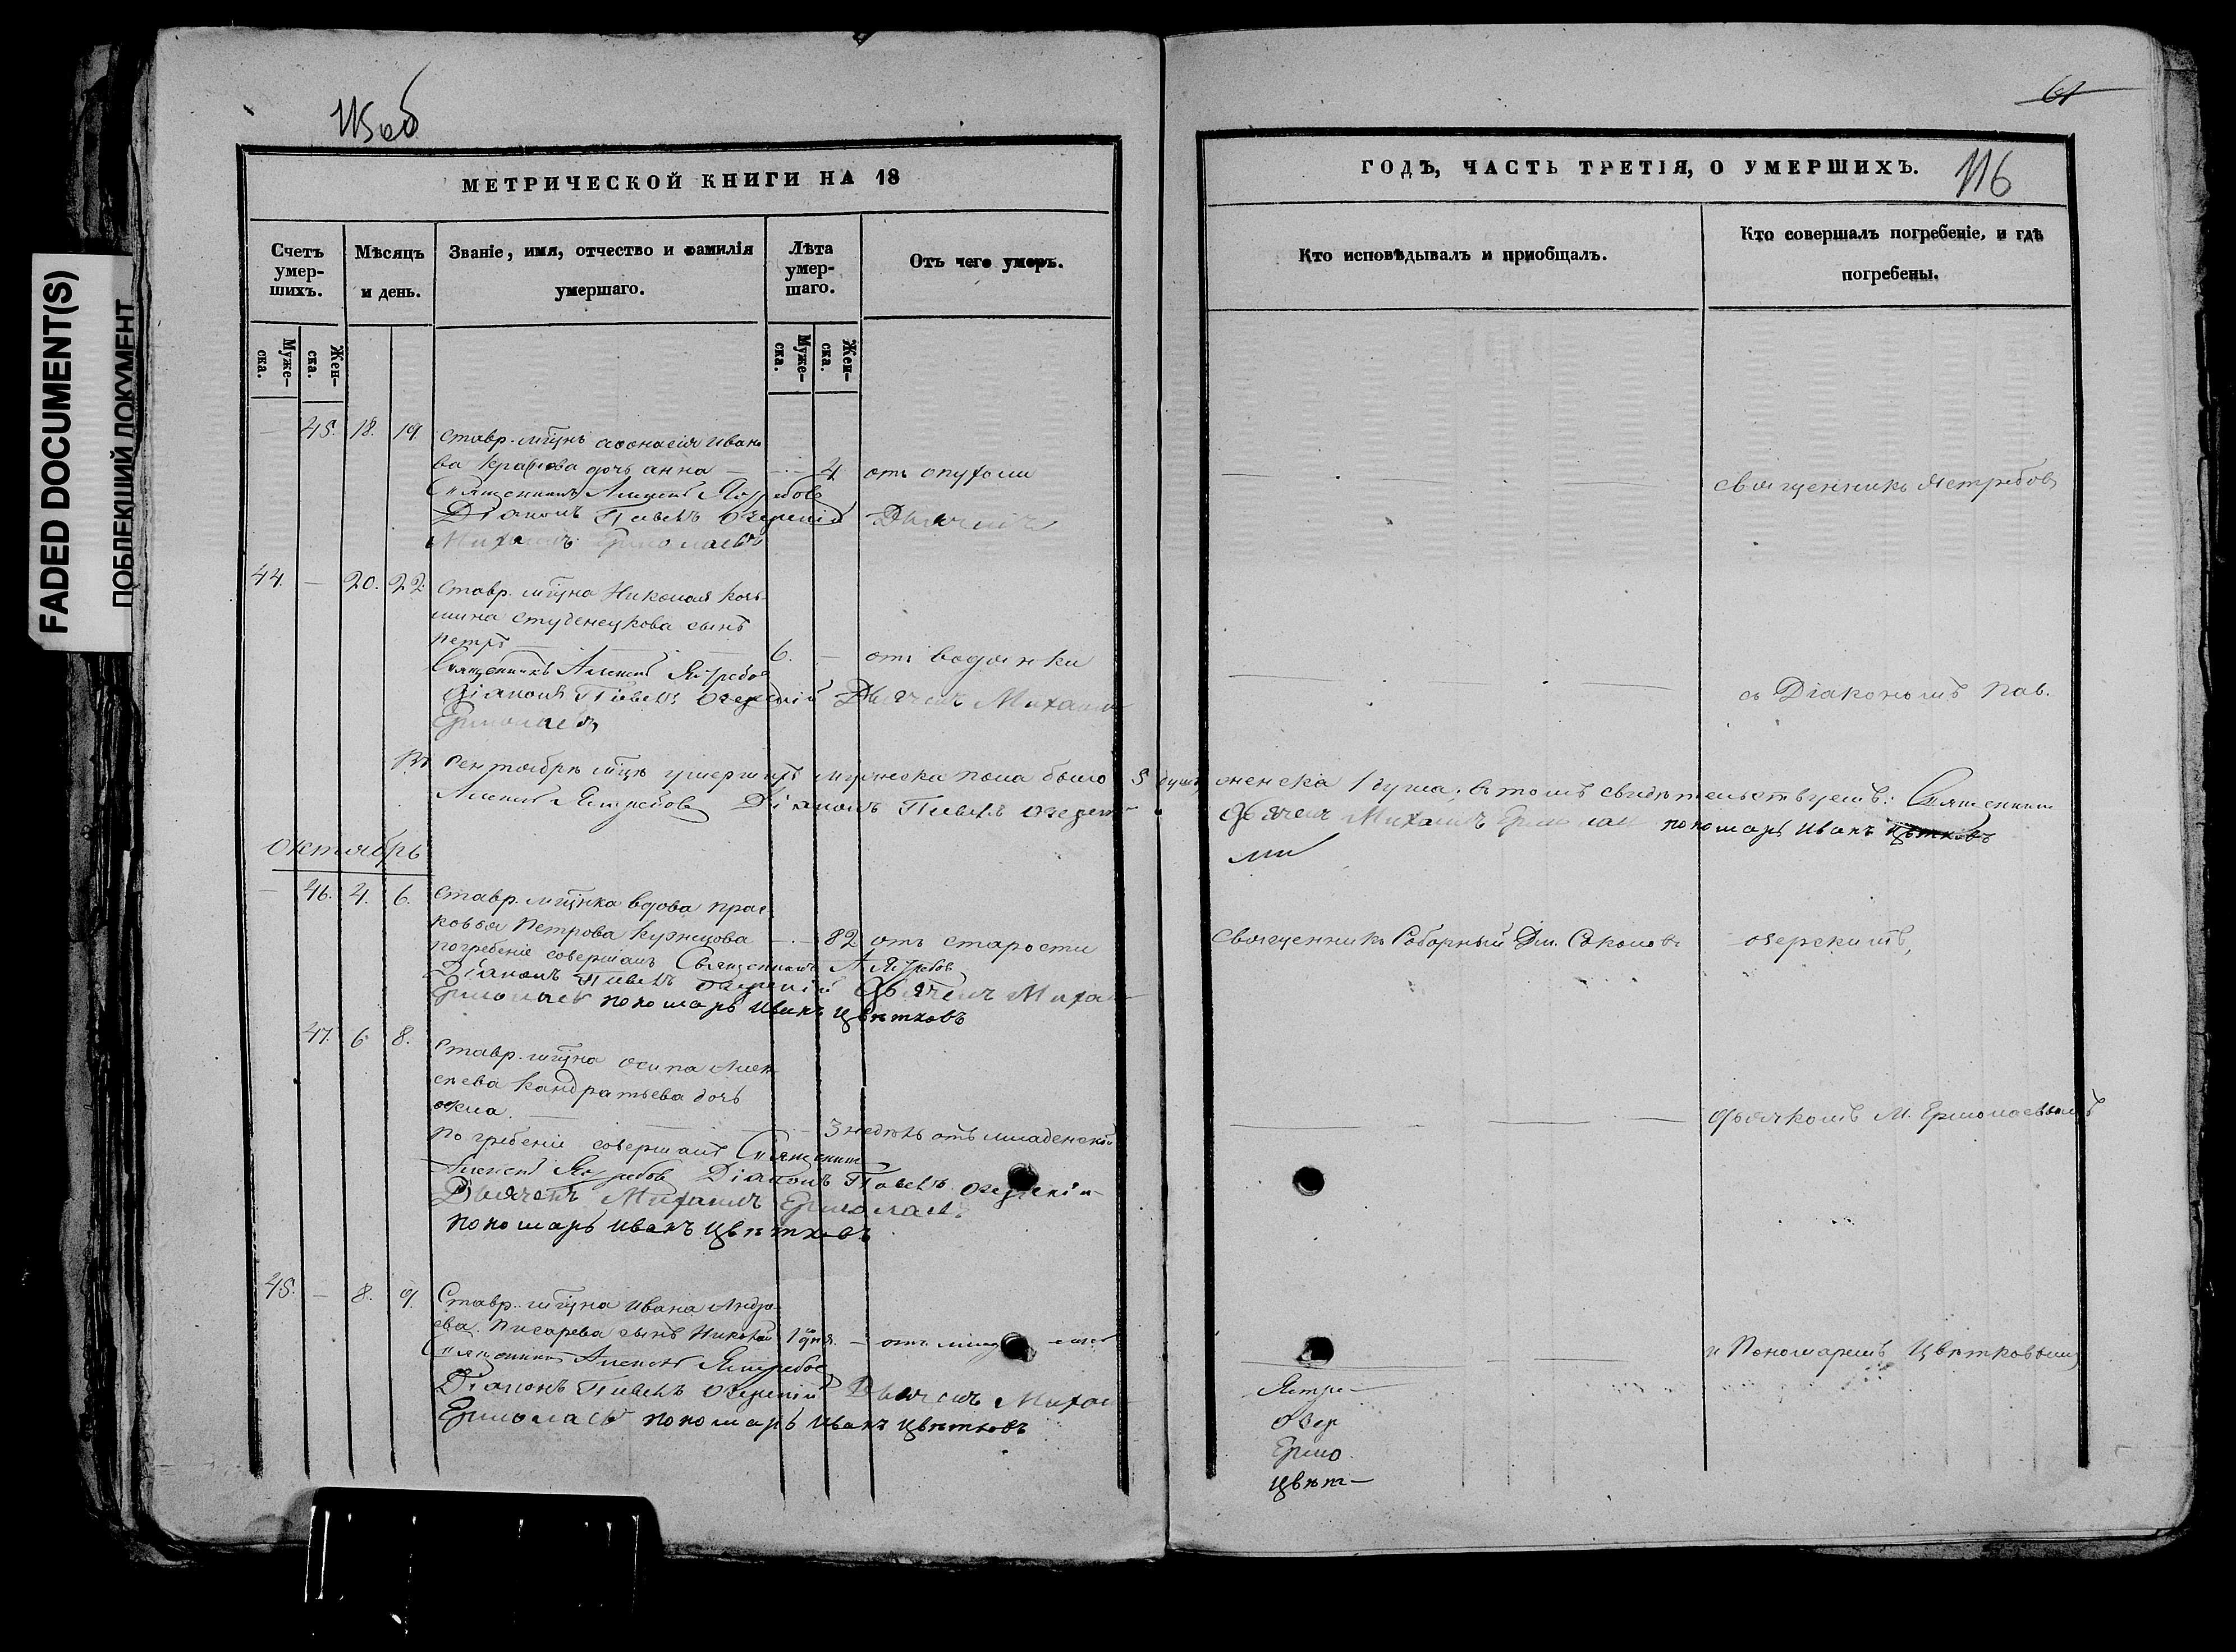 FADED DOCUMENT(S)
ПОБЛЕКШИЙ ДОКУМЕНТ
115 об
МЕТРИЧЕСКОЙ КНИГИ НА 18
Счетъ умер-шихъ.
Мѣсяцъ и день.
Званіе, имя, отчество и фамилія умершаго.
Лѣта умер-шаго.
Отъ чего умеръ.
Муже-ска.
Жен-ска.
Муже-ска.
Жен-ска.
— 45. 18. 19. Ставр. мѣщнъ Афонасія Ивано
ва дочь Анна — 4 отъ опухоли
Священникъ Алексѣй Ястребовъ
Діаконъ Павелъ Озерскій Дьячекъ
Михаилъ Ермолаевъ
44. — 20. 22. Ставр. мѣщна Николая Козь-
мина Студенецкова сынъ
Петръ 6. — отъ водянки
Священникъ Алексѣй Ястребов
Діаконъ Павелъ Озерскій Дьячекъ Михаилъ
Ермолаевъ
въ Сентябрѣ мцѣ умершихъ мужеска пола было 5 душъ
Алексѣй Ястребовъ Діаконъ Павелъ Озерскій
Октябрь
— 46. 4. 6. Ставр. мѣщнка вдова Прас-
ковья Петрова Кузнецова — 82 отъ старости
погребеніе совершалъ Священникъ А Ястребов
Діаконъ Павелъ Озерскій Дьячекъ Михаилъ
Ермолаевъ Пономарь Иванъ Цвѣтковъ
47. 6 8. Ставр. мѣщна Осипа Алек
сѣева Кандратьева дочь
3 недѣль отъ младенской
погребеніе совершалъ Священникъ
Алексѣй Ястребов Діаконъ Павелъ Озерскій
Дьячекъ Михаилъ Ермолаевъ
Пономарь Иванъ Цвѣтковъ
45. — 8. 9. Ставр. мѣщна Ивана Андре
ева Писарева сынъ Николай 1 дня — отъ
Священникъ Алексѣй Ястребовъ
Діаконъ Павелъ Озерскій Дьячекъ Михаил
Ермолаевъ Пономарь Иванъ Цвѣтковъ
61
ГОДЪ, ЧАСТЬ ТРЕТІЯ, О УМЕРШИХЪ.
116
Кто исповѣдывалъ и приобщалъ.
Кто совершалъ погребеніе, и гдѣ погребены.
Священникъ Ястребовъ
съ Діакономъ Пав.
женска 1 душа, въ томъ свидѣтельствуетъ: Священникъ
Дьячекъ Михаилъ Ермолаевъ Пономарь Иванъ Цвѣтковъ
Священникъ Соборный Дм. Соколовъ
Озерскимъ,
Дьячкомъ М. Ермолаевымъ
и Пономаремъ Цвѣтковымъ
Ястре-
Озер
Ермо
Цвѣт-